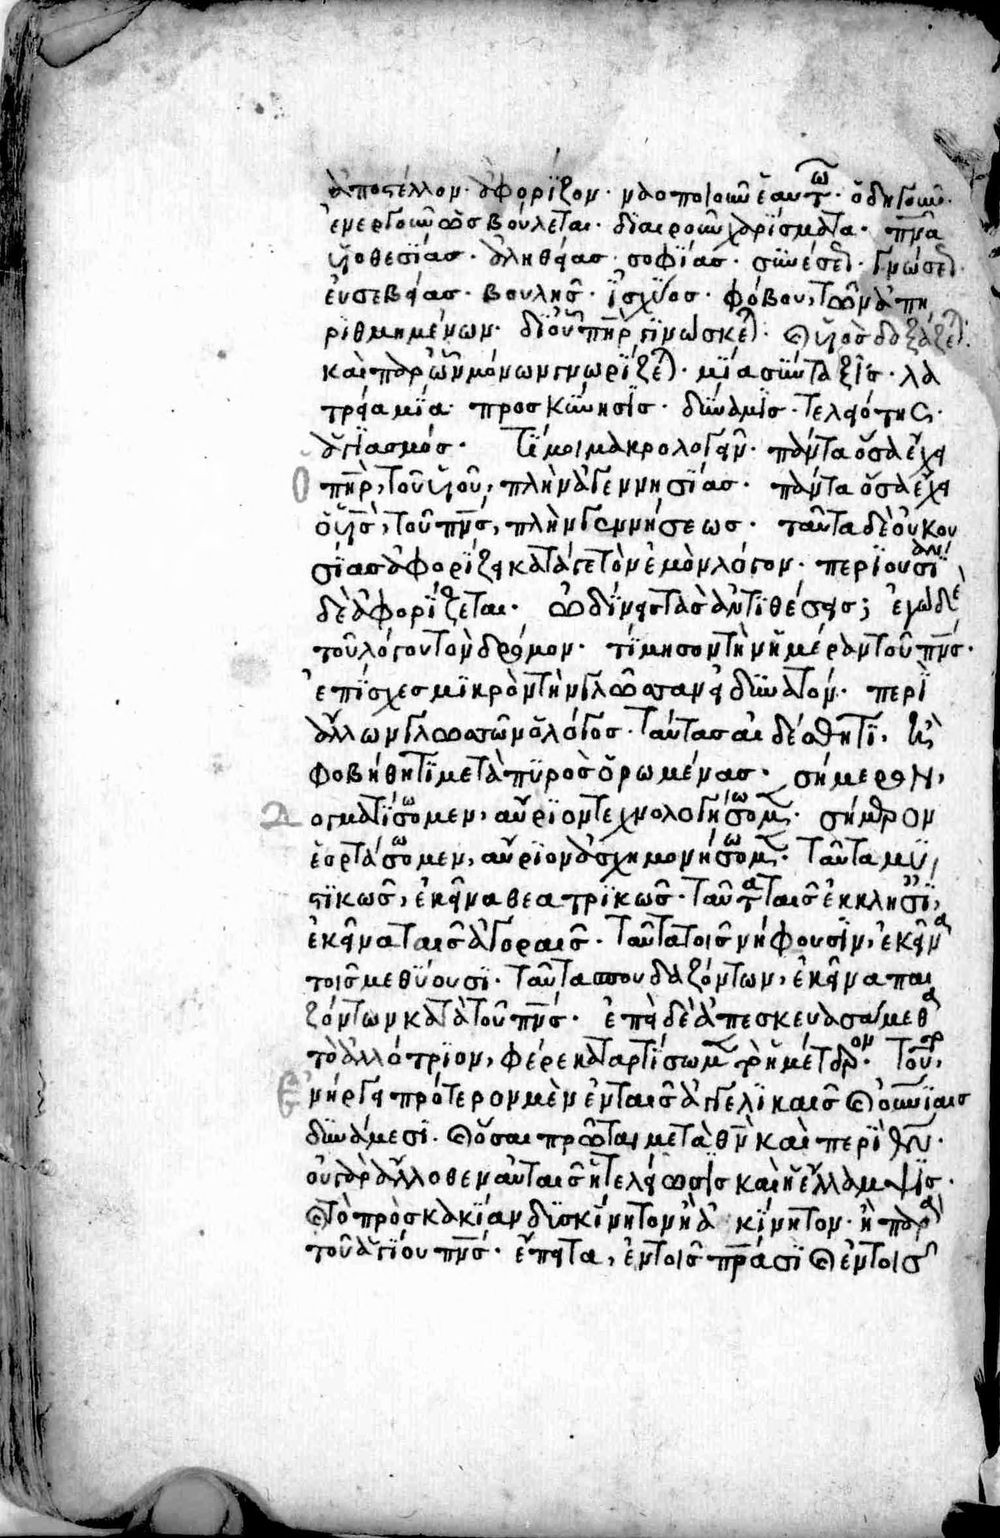 ἀποστέλλον· ἀφορίζον· ναοποιοῦν ἑαυτῶ· ὁδηγοῦν·
ἐνεργοῦν ὡς βούλεται· διαιροῦν χαρίσματα· πνα
υἱοθεσίας· ἀληθείας· σοφίας· συνέσεως· γνώσεως·
εὐσεβείας· βουλῆς· ἰσχύος· φόβου, τῶν ἀπη
ριθμημένων· δι οὗ πηρ γινώσκεται· καὶ υἱὸς δοξάζεται·
καὶ παρ ὧν μόνων γνωρίζεται· μία σύνταξις· λα
τρεία μία· προσκύνησις· δύναμις· τελειότης·
ἁγιασμός· τί μοι μακρολογεῖν· πάντα ὅσα ἔχει
ὁ πηρ, τοῦ υἱοῦ, πλὴν ἀγεννησίας· πάντα ὅσα ἔχει
ὁ υἱὸς, τοῦ πνς, πλὴν γεννήσεως· ταῦτα δὲ οὐκ οὐ
σίας ἀφορίζει κατά γε τὸν ἐμὸν λόγον· περὶ οὐσίαν
δὲ ἀφορίζεται· ὠδίνεις τὰς ἀντιθέσεις; ἐγὼ δὲ
τοῦ λόγου τὸν δρόμον· τίμησον τὴν ἡμέραν τοῦ πνς·
ἐπίσχες μικρὸν τὴν γλῶσσαν εἰ δυνατόν· περὶ
ἄλλων γλωσσῶν ὁ λόγος· ταύτας αἰδέσθητι, καὶ
φοβήθητι μετὰ πυρὸς ὁρωμένας· σήμερον,
δογματίσωμεν, αὔριον τεχνολογήσωμεν· σήμερον
ἑορτάσωμεν, αὔριον ἀσχημονήσωμεν· ταῦτα μυ
στικῶς, ἐκεῖνα θεατρικῶς· ταῦτα ταῖς ἐκκλησίαις,
ἐκεῖνα ταῖς ἀγοραῖς· ταῦτα τοῖς νήφουσιν, ἐκεῖνα
τοῖς μεθύουσι· ταῦτα σπουδαζόντων, ἐκεῖνα παι
ζόντων κατὰ τοῦ πνς· ἐπεὶ δὲ ἀπεσκευασάμεθα
τὸ ἀλλότριον, φέρε καταρτίσωμεν τὸ ἡμέτερον· τοῦτο,
ἐνήργει πρότερον μὲν ἐν ταῖς ἀγγελικαῖς καὶ οὐνίαις
δυνάμεσι· καὶ ὅσαι πρῶται μετὰ θν καὶ περὶ θν·
οὐ γὰρ ἄλλοθεν αὐταῖς ἡ τελείωσις καὶ ἡ ἔλλαμψις·
καὶ τὸ πρὸς κακίαν δυσκίνητον ἢ ἀκίνητον· ἢ παρὰ
τοῦ ἁγίου πνς· ἔπειτα, ἐν τοῖς πράσι καὶ ἐν τοῖς